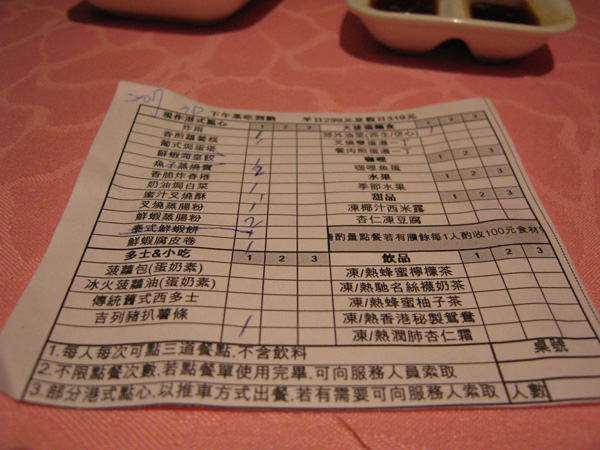 下午茶吃到飽 平日299元星假日319元
現作港式點心 1 2 3
炸兩
香煎蘿蔔糕 1
葡式焗蛋塔
鮮蝦海皇餃
魚子蒸燒賣 2
香脆炸香捲
奶油焗白菜 1
蜜汁叉燒酥 1
叉燒蒸腸粉 1
鮮蝦蒸腸粉 2
泰式鮮蝦餅 2
鮮蝦腐皮卷 1
多士&小吃 1 2 3
菠蘿包(蛋奶素)
冰火菠蘿油(蛋奶素)
傳統舊式西多士
吉列豬扒薯條 1
1 2 3
郊外油菜(西生/空心)
叉燒雙蛋
餐肉煎蛋
咖哩 1 2 3
咖哩魚蛋
水果 1 2 3
季節水果
甜品 1 2 3
凍椰汁西米露
杏仁凍豆腐
請酌量點餐若有賸餘每1人酌收100元食材
飲品 1 2 3
凍/熱蜂蜜檸檬茶
凍/熱馳名絲襪奶茶
凍/熱蜂蜜柚子茶
凍/熱香港秘製鴛鴦
凍/熱潤肺杏仁霜
1.每人每次可點三道餐點,不含飲料 桌號
2.不限點餐次數,若點餐單使用完畢,可向服務人員索取
3.部分港式點心,以推車方式出餐,若有需要可向服務人索取 人數